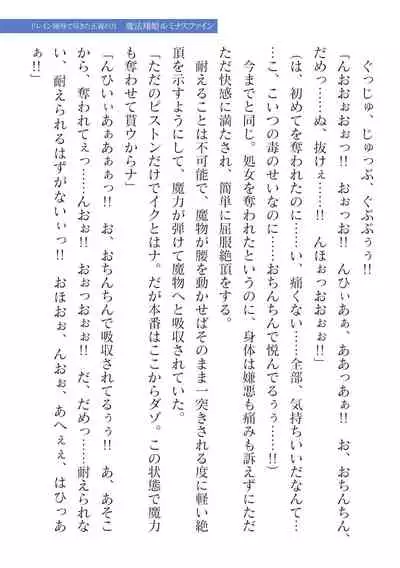 ドレイン陵辱で尽きた正義の光　魔法翔姫ルミナスファイン
ぐっじゅ、じゅっぷ、ぐぶぷぅぅ!!
「んおぉおぉおっっ!!　おぉっお!!　んひぃあぁ、ああっあぁ!!　お、おちんちん、
だめっっ……ぬ、抜けぇ……!!　んほぉっおおぉぉ!!」
（は、初めてを奪われたのに……い、痛くない……全部、気持ちいいだなんて……
こ、こいつの毒のせいなのに……おちんちんで悦んでるぅぅ……!!）
今までと同じ。処女を奪われたというのに、身体は嫌悪も痛みも訴えずにただ
ただ快感に満たされ、簡単に屈服絶頂をする。
耐えることは不可能で、魔物が腰を動かせばそのまま一突きされる度に軽い絶
頂を示すようにして、魔力が弾けて魔物へと吸収されていた。
「ただのピストンだけでイクとはナ。だが本番はここからダゾ。この状態で魔力
も奪わせて貰ウからナ」
「んひいぃあぁあぁぁっ!!　お、おちんちんで吸収されてるぅぅ!!　あ、あそこ
から、奪われてぇっ……んおぉ!!　おぉっおぉぉ!!　だ、だめっ……耐えられな
い、耐えられるはずがないぃっ!!　おほおぉ、んおぉ、あへぇぇ、はひっあ
ぁ!!」